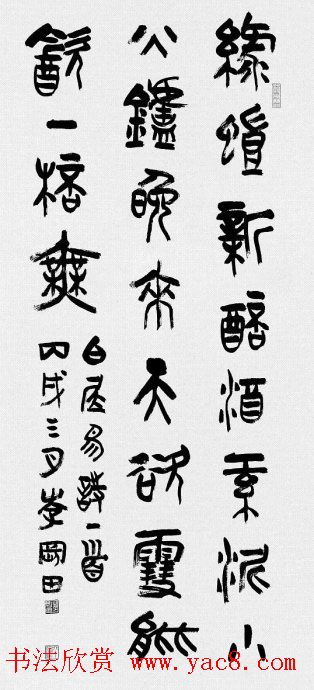 綠螘新醅酒紅泥小
火鑪晚來天欲雪能
飲一桮無
白居易詩一首
丙戌三月李岡田
书法欣赏 www.yac8.com